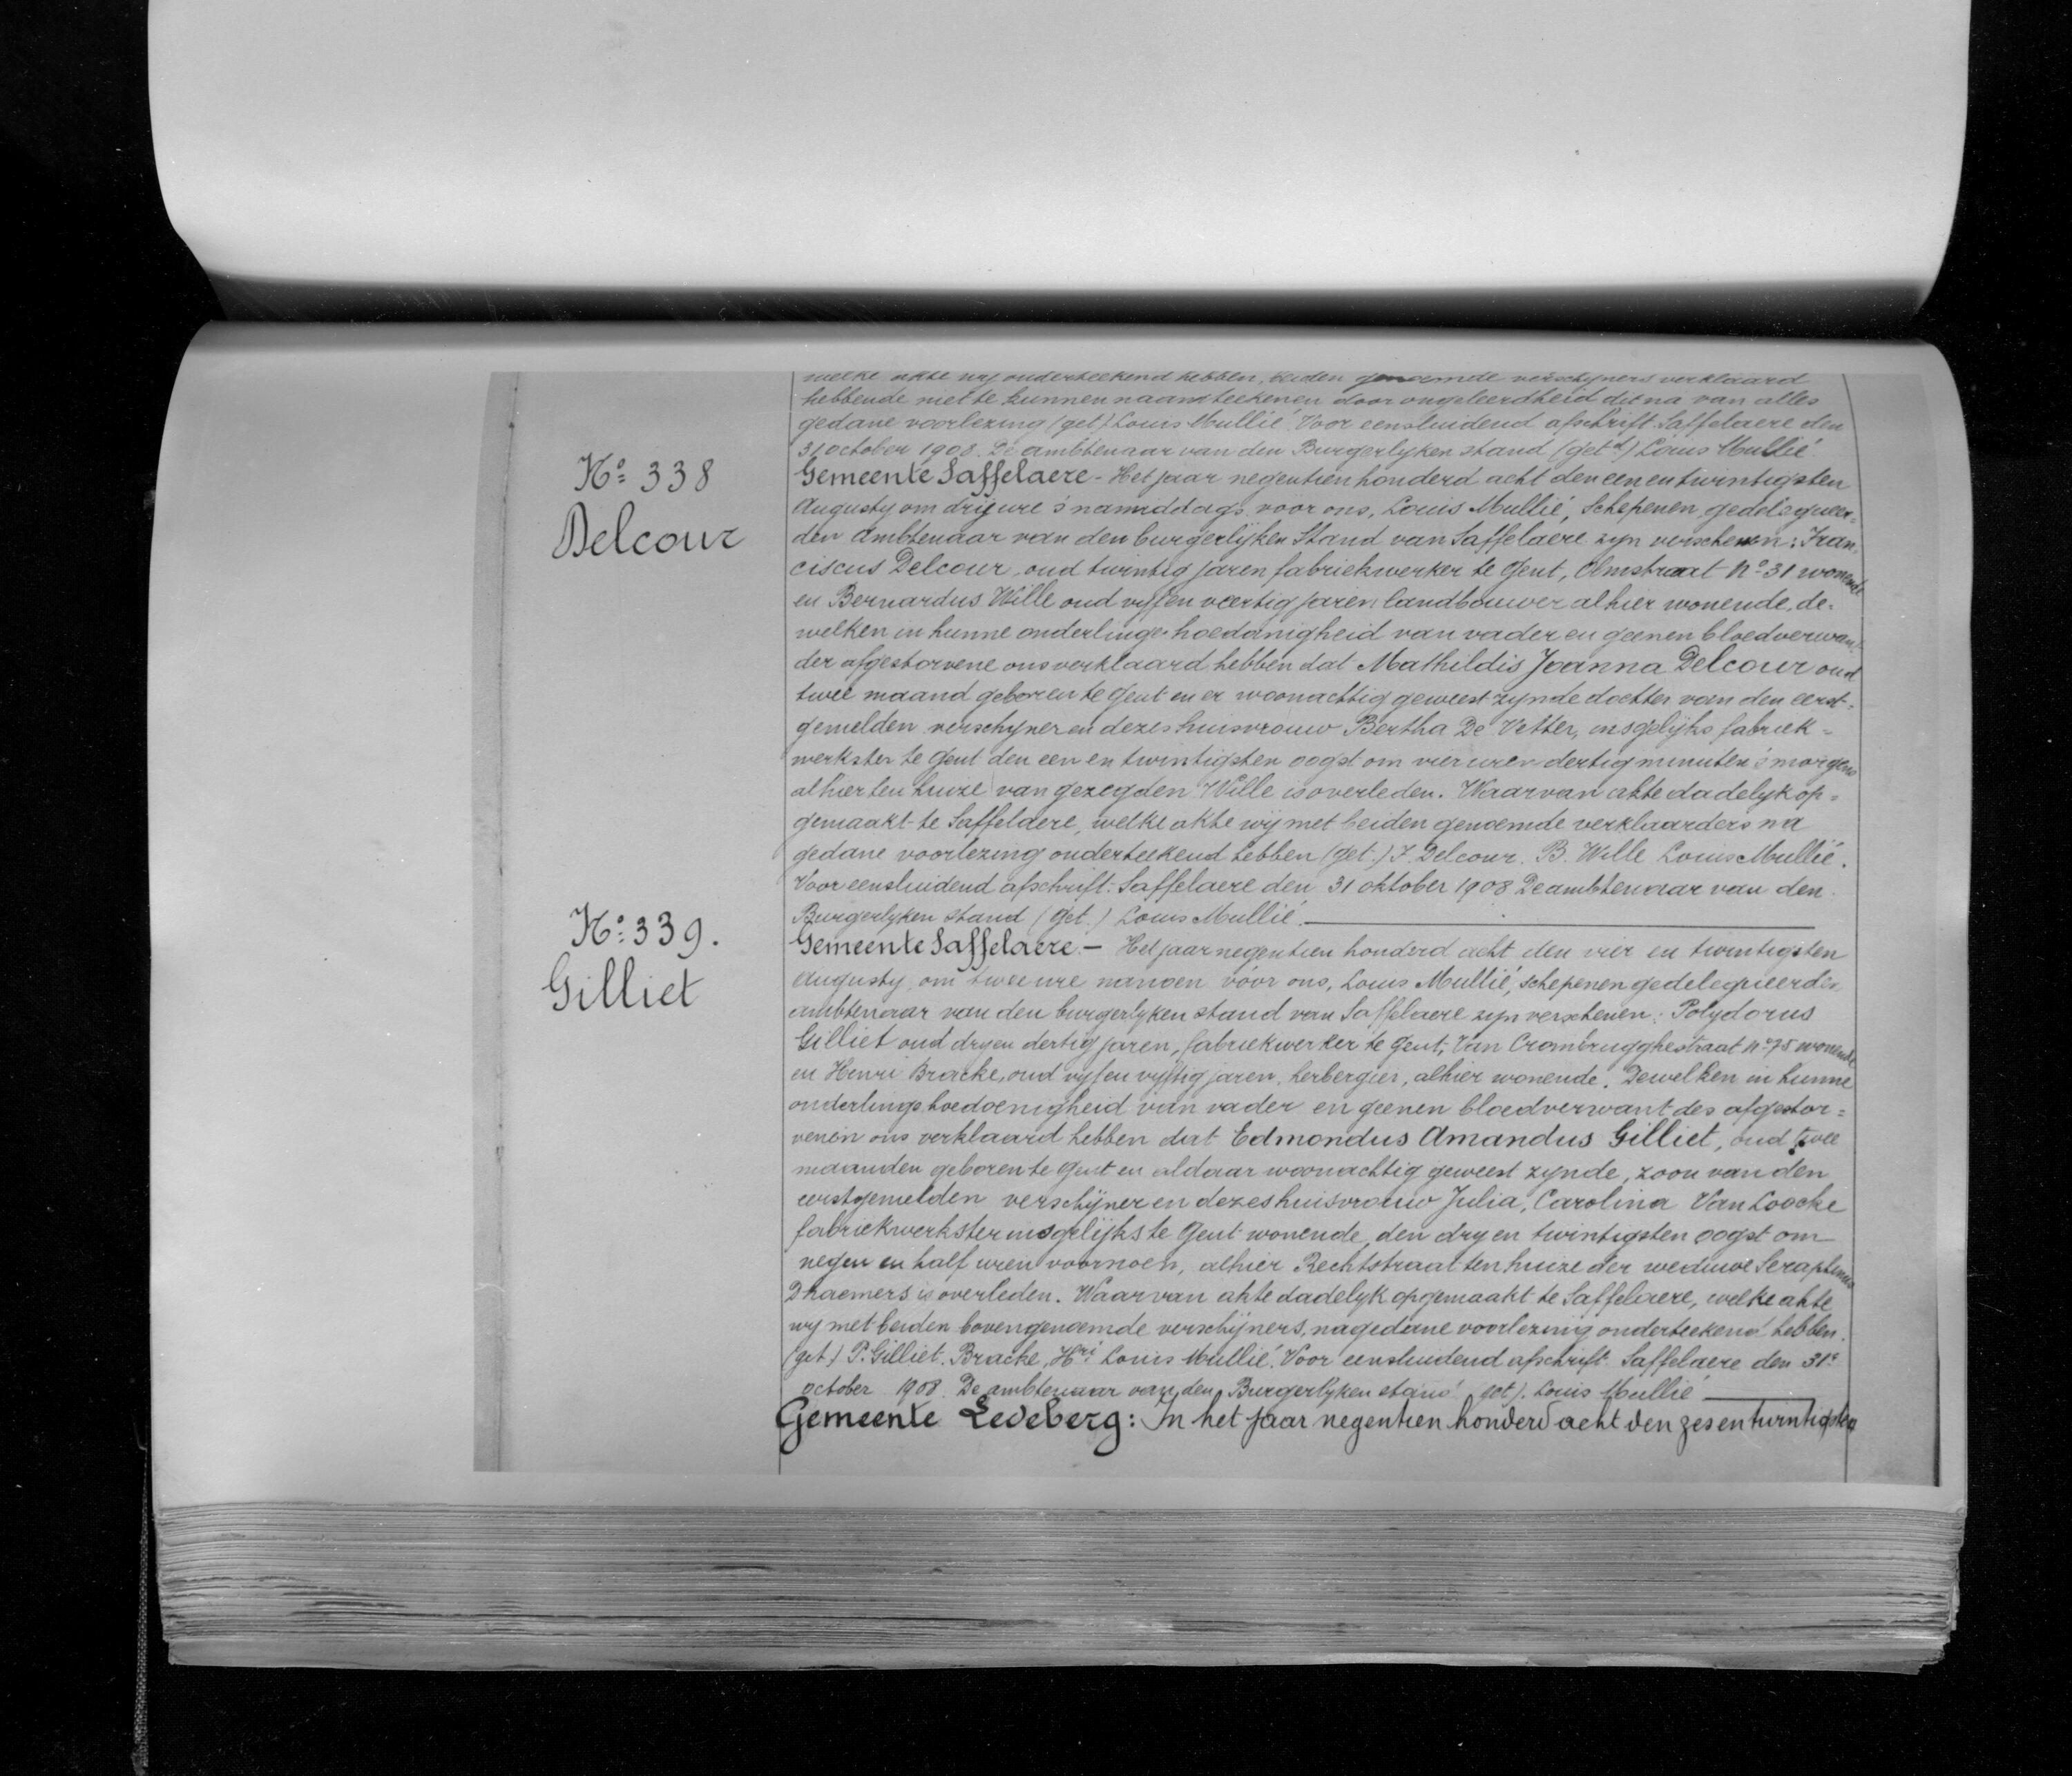 welke akte wij onderteekend hebben, beiden genoemde verschijners verklaard
hebbende niet te kunnen naamteekenen door ongeleerdheid dit na van alles
gedane voorlezing (get) Louis Mullié. Voor eensluidend afschrift Saffelaere den
31 october 1908. De ambtenaar van den Burgerlyken stand (getd) Louis Mullié.
No 338
Delcour
Gemeente Saffelaere - Het jaar negentien honderd acht den een en twintigsten
Augusty om drij ure s'namiddags voor ons, Louis Mullié, Schepenen, gedelegueer=
den ambtenaar van den burgerlijken Stand van Saffelaere zyn verschenen: Fran=
ciscus Delcour, oud twintig jaren fabriekwerker te Gent, Olmstraat No 31 wonende
en Bernardus Wille oud vyf en veertig jaren landbouwer alhier wonende, de=
welken in hunne onderlinge hoedanigheid van vader en geenen bloedverwant
der afgestorvene ons verklaard hebben dat Mathildis Joanna Delcour oud
twee maand geboren te Gent en er woonachtig geweest zynde dochter van den eerst=
gemelden verschyner en dezes huisvrouw Bertha De Vetter, insgelijks fabriek=
werkster te Gent den een en twintigsten oogst om vier uren dertig minuten s'morgens
alhier ten huize van gezegden Wille is overleden. Waarvan akte dadelyk op=
gemaakt te Saffelaere, welke akte wij met beiden genoemde verklaarders na
gedane voorlezing onderteekend hebben (get.) F. Delcour. B. Wille Louis Mullié.
Voor eensluidend afschrift: Saffelaere den 31 oktober 1908 De ambtenaar van den
Burgerlyken stand (get.) Louis Mullié.
No: 339.
Gilliet
Gemeente Saffelaere. - Het jaar negentien honderd acht den vier en twintigsten
Augusty, om twee ure nanoen vóor ons, Louis Mullié, schepenen gedelegueerden
ambtenaar van den burgerlyken stand van Saffelaere zyn verschenen: Polydorus
Gilliet oud dry en dertig jaren, fabriekwerker te Gent, Van Crombrugghestraat No 75 wonende
en Henri Bracke, oud vyf en vyftig jaren, herbergier, alhier wonende. Dewelken in hunne
onderlinge hoedoenigheid van vader en geenen bloedverwant des afgestor=
venen ons verklaard hebben dat Edmondus Amandus Gilliet, oud twee
maanden geboren te Gent en aldaar woonachtig geweest zynde, zoon van den
eerstgemelden verschijner en dezes huisvrouw Julia, Carolina Van Loocke
fabriekwerkster insgelijks te Gent wonende, den dry en twintigsten oogst om
negen en half uren voornoen, alhier Rechtstraat ten huize der weduwe Seraphinus
Dhaemers is overleden. Waarvan akte dadelyk opgemaakt te Saffelaere, welke akte
wy met beiden bovengenoemde verschijners, na gedane voorlezing onderteekend hebben.
(get.) P. Gilliet. Bracke, Hri Louis Mullié. Voor eensluidend afschrift. Saffelaere den 31e
october 1908. De ambtenaar van den Burgerlyken stand get). Louis Mullié
Gemeente Ledeberg: In het jaar negentien honderd acht den zes en twintigsten